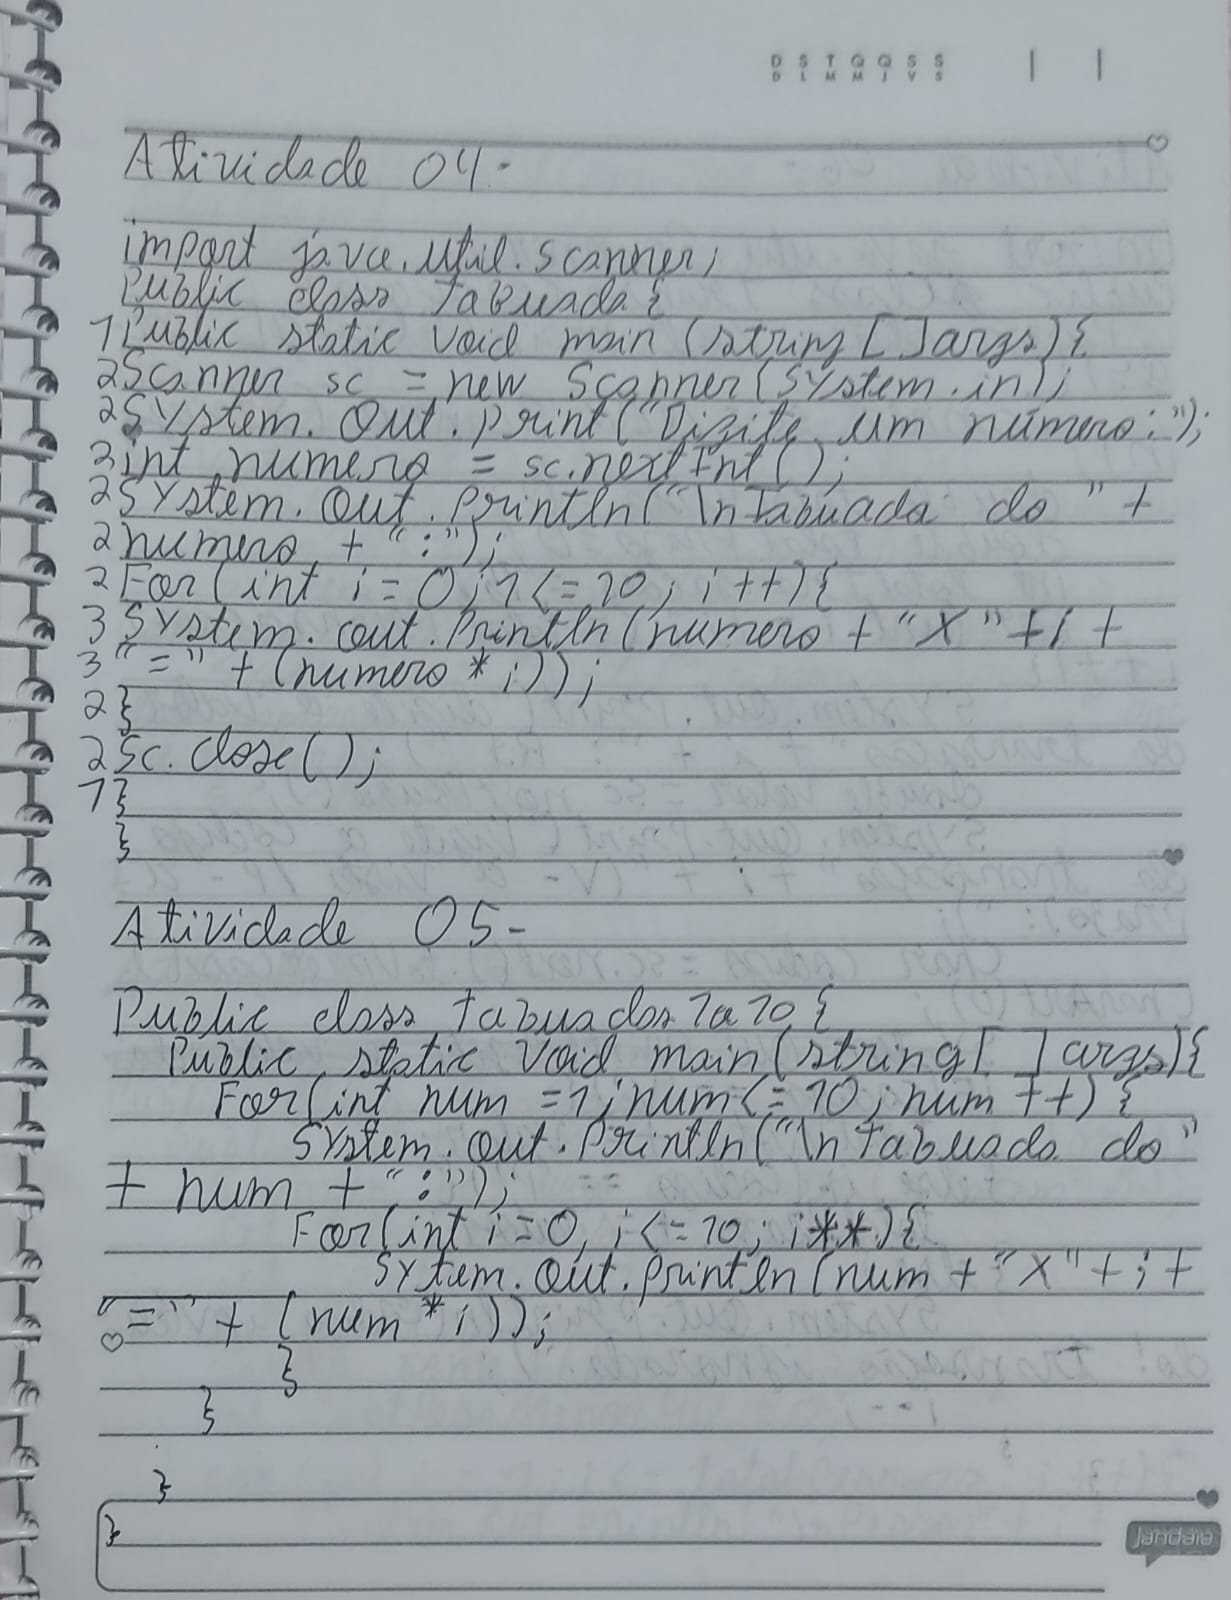 D S T Q Q S S
D L M M J V S
Atividade 04-
import java.util.scanner;
Public class Tabuada{
1 Public static void main (string[]args){
2 Scanner sc = new Scanner(System.in);
2 System.out.print("Digite um número:");
3 int numero = sc.nextInt();
2 System.out.println("\nTabuada do " +
2 numero + ":");
2 For(int i=0; i<=10; i++){
3 System.out.println(numero + "X"+i +
3 "=" + (numero * i));
2 }
2 Sc.close();
1 }
}
Atividade 05-
Public class tabuadas1a10{
Public static void main(string[]args){
For(int num =1;num<=10;num++){
System.out.println("\nTabuada do"
+ num + ":");
For(int i=0, i<=10; i**){
Sytem.out.println(num + "X"+i+
"=" + (num * i));
}
}
}
}
Jandaia